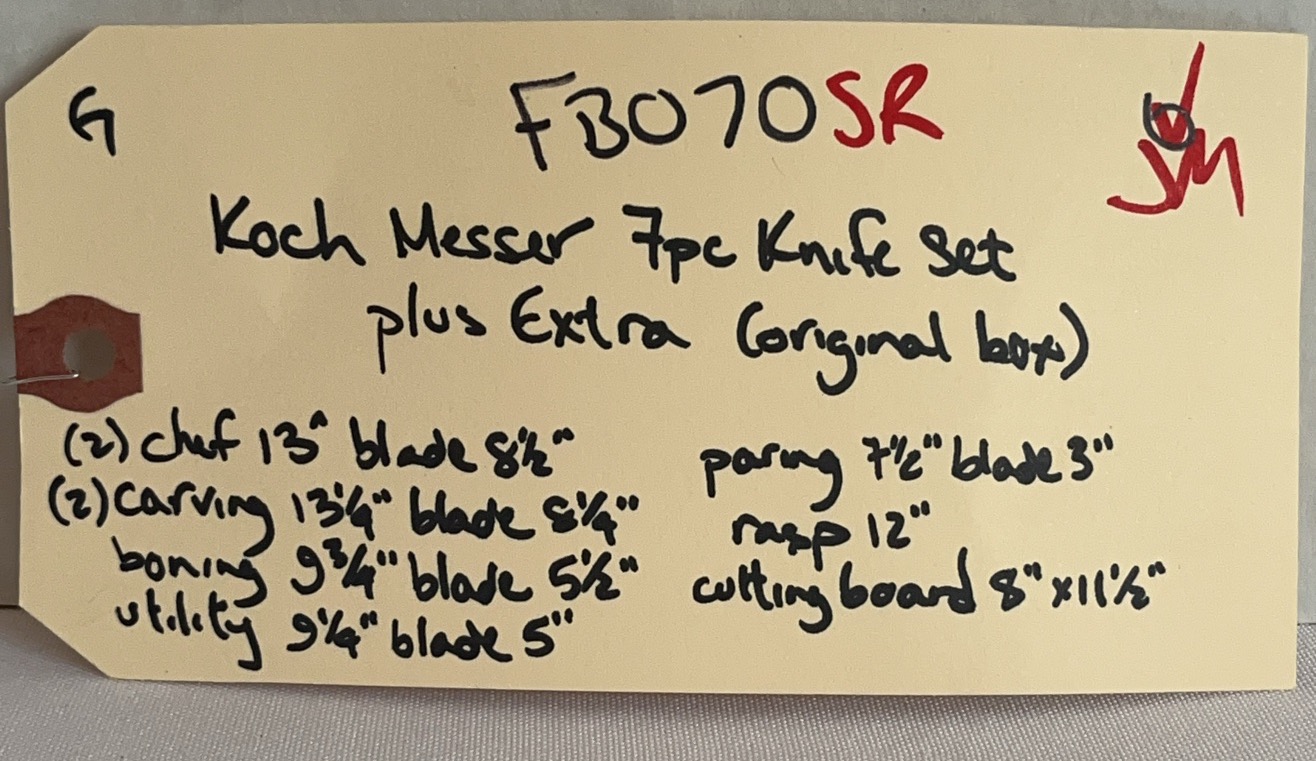 G
FB070SR
JM
Koch Messer 7pc Knife Set
plus Extra (original box)
(2) chef 13" blade 8½"
(2) carving 13¼" blade 8¼"
boning 9¾" blade 5½"
utility 9¼" blade 5"
paring 7½" blade 3"
rasp 12"
cutting board 8" x 11½"